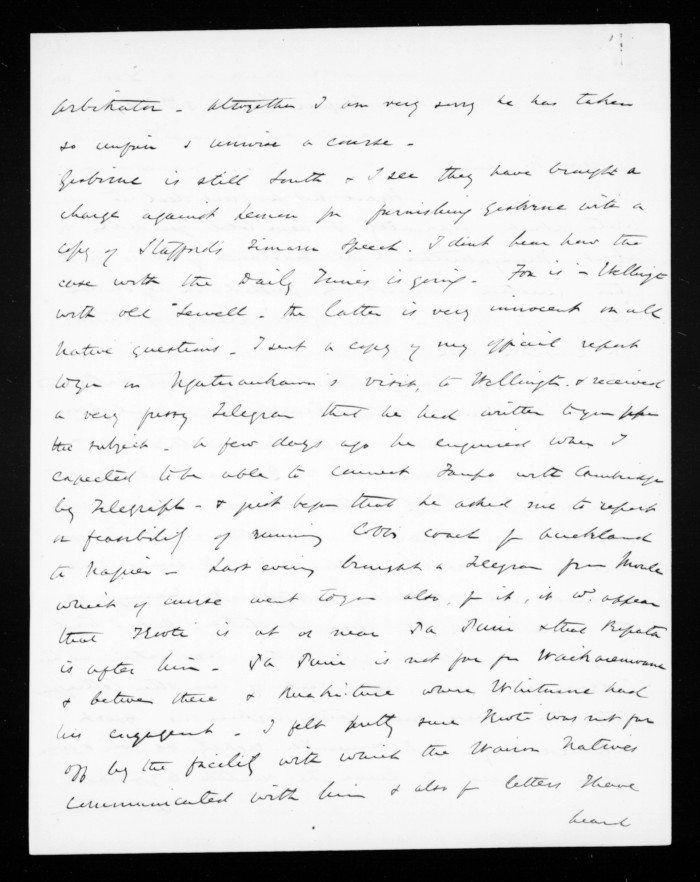 Arbitrator - Altogether I am very sorry he has taken
so unfair & unwise a course -
Gisborne is still South & I see they have brought a
charge against Lemon for furnishing Gisborne with a
copy of Stafford's Timaru Speech. I dont hear how the
case with the Daily Times is going - Fox is in Wellingt
with old Sewell - the latter is very innocent on all
Native questions - I sent a copy of my official report
to you on visit, to Wellingt. & received
a very Telegram that he had written to you upon
the subject - A few days ago he enquired when I
expected to be able to connect Taupo with Cambridge
by Telegraph - & just before that he asked me to report
on feasibility of running Cobbs coach fr Auckland
to Napier - Last eveng brought a Telegram from Moule
which of course went to you also, fr it, it wd. appear
that Kooti is at or near & that Ropata
is after him - is not far fr Waikaremoana
& between there & Ruakiture where Whitmore had
his engagent - I felt pretty sure Kooti was not far
off by the facility with which the Wairoa Natives
communicated with him & also fr letters I have
heard